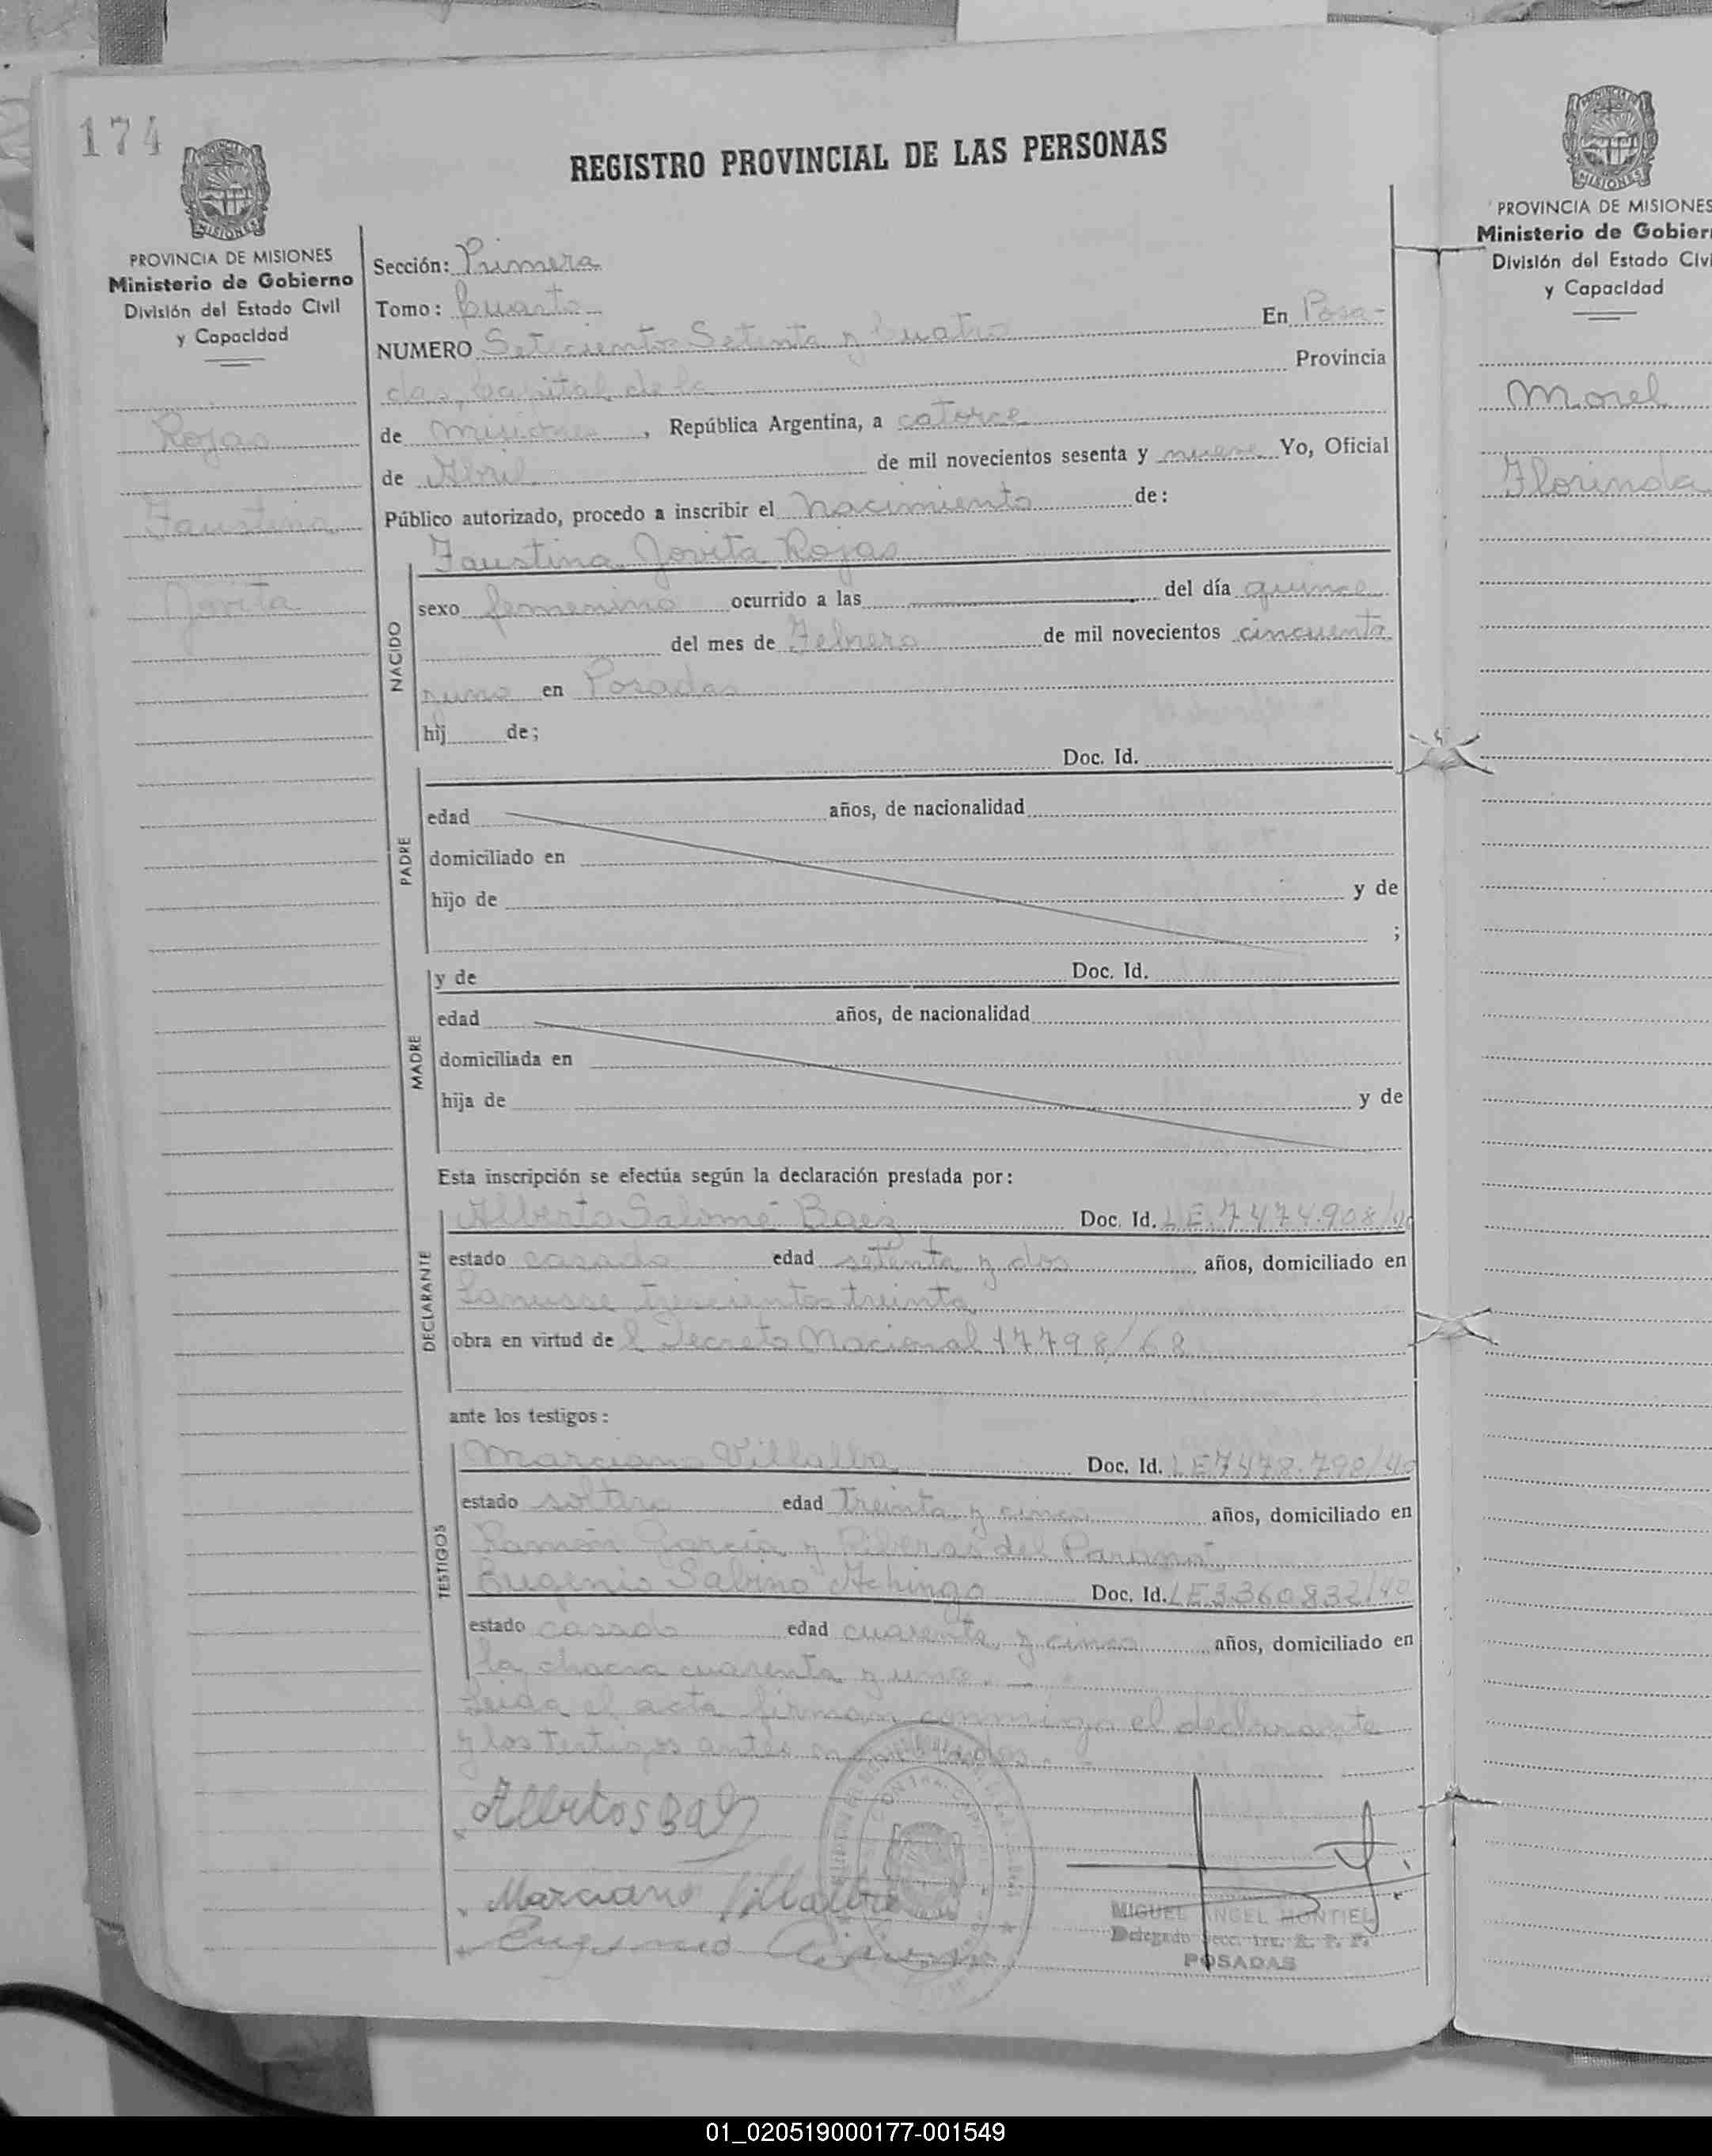 174
REGISTRO PROVINCIAL DE LAS PERSONAS
MISIONES
PROVINCIA DE MISIONES
Ministerio de Gobierno
División del Estado Civil
y Capacidad
Rojas
Faustina
Jovita
Sección: Primera
Tomo: Cuarto
NUMERO Setecientos Setenta y Cuatro En Posa-
das, Capital de la Provincia
de Misiones, República Argentina, a catorce
de Abril de mil novecientos sesenta y nueve Yo, Oficial
Público autorizado, procedo a inscribir el Nacimiento de:
NACIDO
Faustina Jovita Rojas
sexo femenino ocurrido a las del día quince
del mes de Febrero de mil novecientos cincuenta
y uno en Posadas
hij de;
PADRE
Doc. Id.
edad años, de nacionalidad
domiciliado en
hijo de y de
;
MADRE
y de Doc. Id.
edad años, de nacionalidad
domiciliada en
hija de y de
Esta inscripción se efectúa según la declaración prestada por:
DECLARANTE
Alberto Salomé Baez Doc. Id. LE.7474.908/40
estado casado edad setenta y dos años, domiciliado en
Lanusse trescientos treinta
obra en virtud de l Decreto Nacional 17798/68
ante los testigos:
TESTIGOS
Marciano Villalba Doc. Id. LE7478.790/40
estado soltero edad Treinta y cinco años, domiciliado en
Ramón García y Riberas del Paraná
Eugenio Sabino Doc. Id. LE3360832/40
estado casado edad cuarenta y cinco años, domiciliado en
la chacra cuarenta y uno. —
Leida el acta firman conmigo el declarante
y los testigos antes
Marciano Villalba
Eugenio
MIGUEL ANGEL MONTIEL
Delegado Secc. 1ra. R. P. P.
POSADAS
MISIONES
PROVINCIA DE MISIONES
Ministerio de Gobier
División del Estado Civi
y Capacidad
Morel
Florinda
01_020519000177-001549